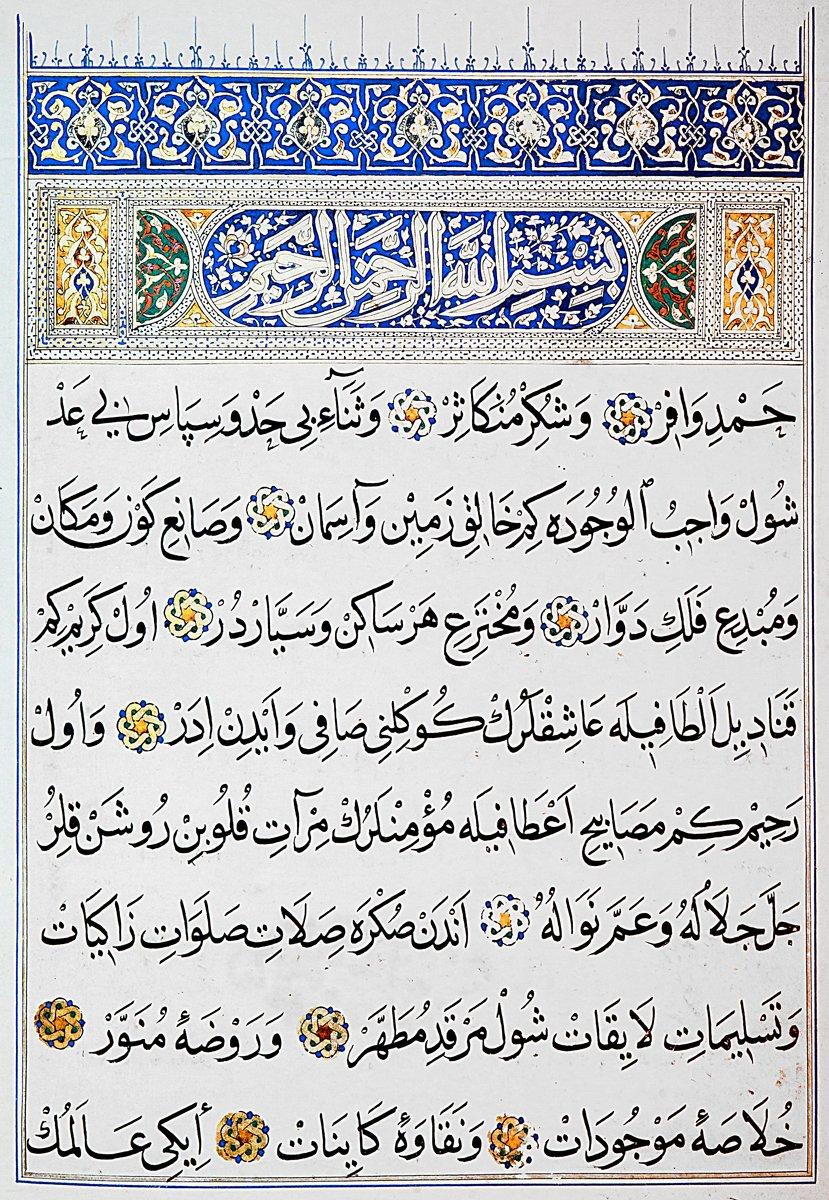 بِسْمِ اللَّهِ الرَّحْمَنِ الرَّحِيمِ
حَمْدِ وَافِرْ وَشُكْرِ مُتَكَاثِرْ وَثَنَاءِ بِی حَدْ وَ سِپَاسِ بِی عَدْ
شُولْ وَاجِبُ ٱلْوُجُودَه كِمْ خَالِقِ زَمِيْن وَآسِمَانْ وَصَانِعِ كَوْن وَمَكَانْ
وَمُبْدِعِ فَلَكِ دَوَّارْ وَمُخْتَرِعِ هَرْ سَاكِنْ وَسَيَّارْدُرْ اُولْ كَرِيمْ كِمْ
قَنَادِيلِ اَلْطَافِيلَه عَاشِقْلَرُكْ كُوكِلْنِی صَافِی وَاَبْدِنْ اِدَرْ وَاُولْ
رَحِيمْ كِمْ مَصَابِيحِ اَعْطَافِيلَه مُؤْمِنْلَرُكْ مِرْآتِ قُلُوبِنْ رُوشَنْ قِلِرْ
جَلَّ جَلَالُهُ وَعَمَّ نَوَالُهُ اَنْدَنْ صُكْرَه صِلَاتِ صَلَوَاتِ زَاكِيَاتْ
وَتَسْلِيمَاتِ لَايِقَاتْ شُولْ مَرْقَدِ مُطَهَّرْ وَرَوْضَهٔ مُنَوَّرْ
خُلَاصَهٔ مَوْجُودَاتْ وَنَقَاوَهٔ كَايِنَاتْ اِيكِی عَالَمُكْ